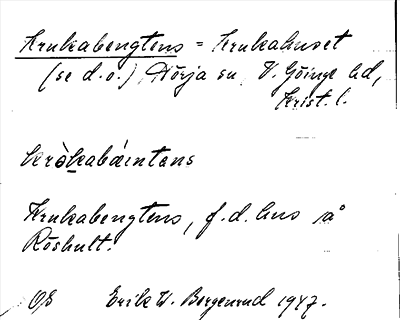 Krukabengtens = Krukahuset
(se d.o.) Nörja sn V. Göinge hd,
Krist. l.
krò̱kabáintans
Krukabengtens, f.d. hus å
Röshult.
OE Erik W. Borgenrud 1947.